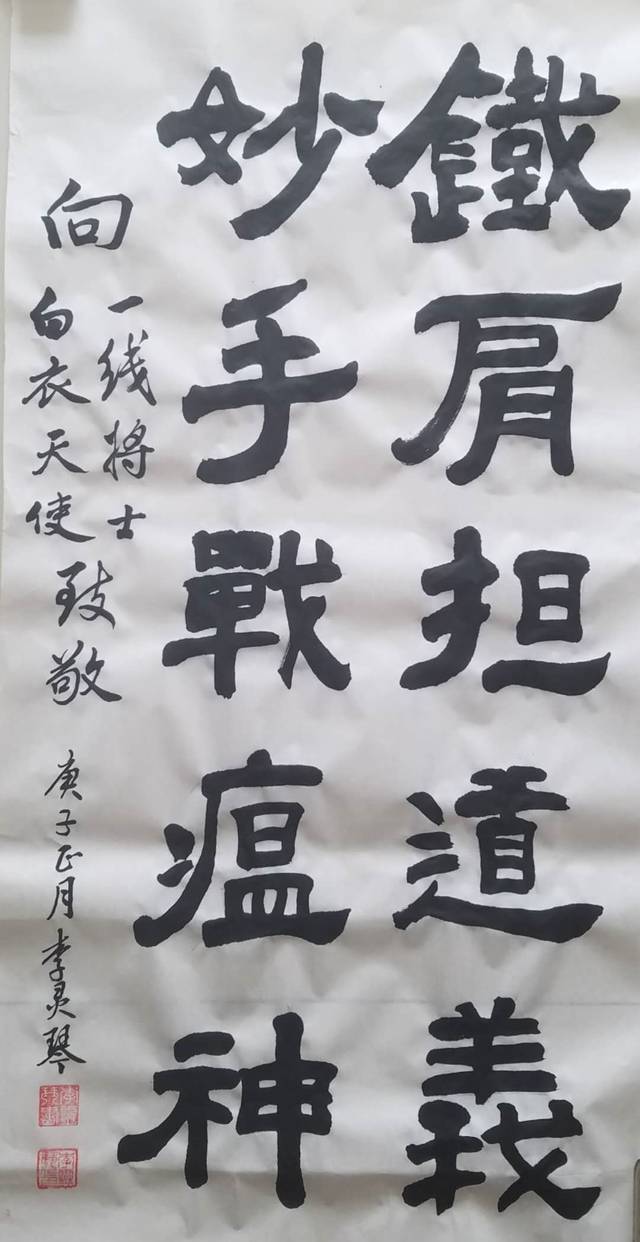 鐵肩担道義
妙手戰瘟神
向一线将士
白衣天使致敬
庚子正月李灵琴